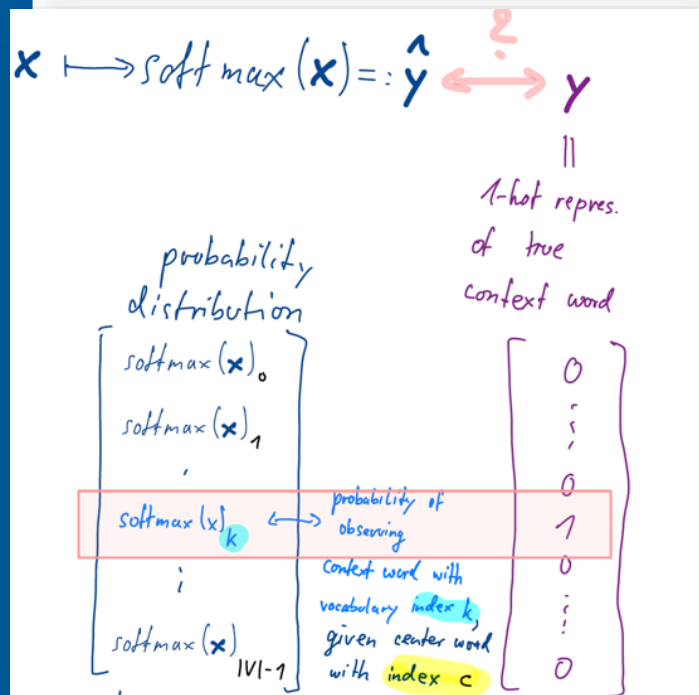 x ⟼ softmax(x) =: ŷ ⟷ y
?
||
1-hot repres.
of true
context word
probability
distribution
softmax(x)₀
softmax(x)₁
softmax(x)k ⟷ probability of
observing
context word with
vocabulary index k,
given center word
with index c
softmax(x)|V|-1
0
⋮
0
1
0
⋮
0